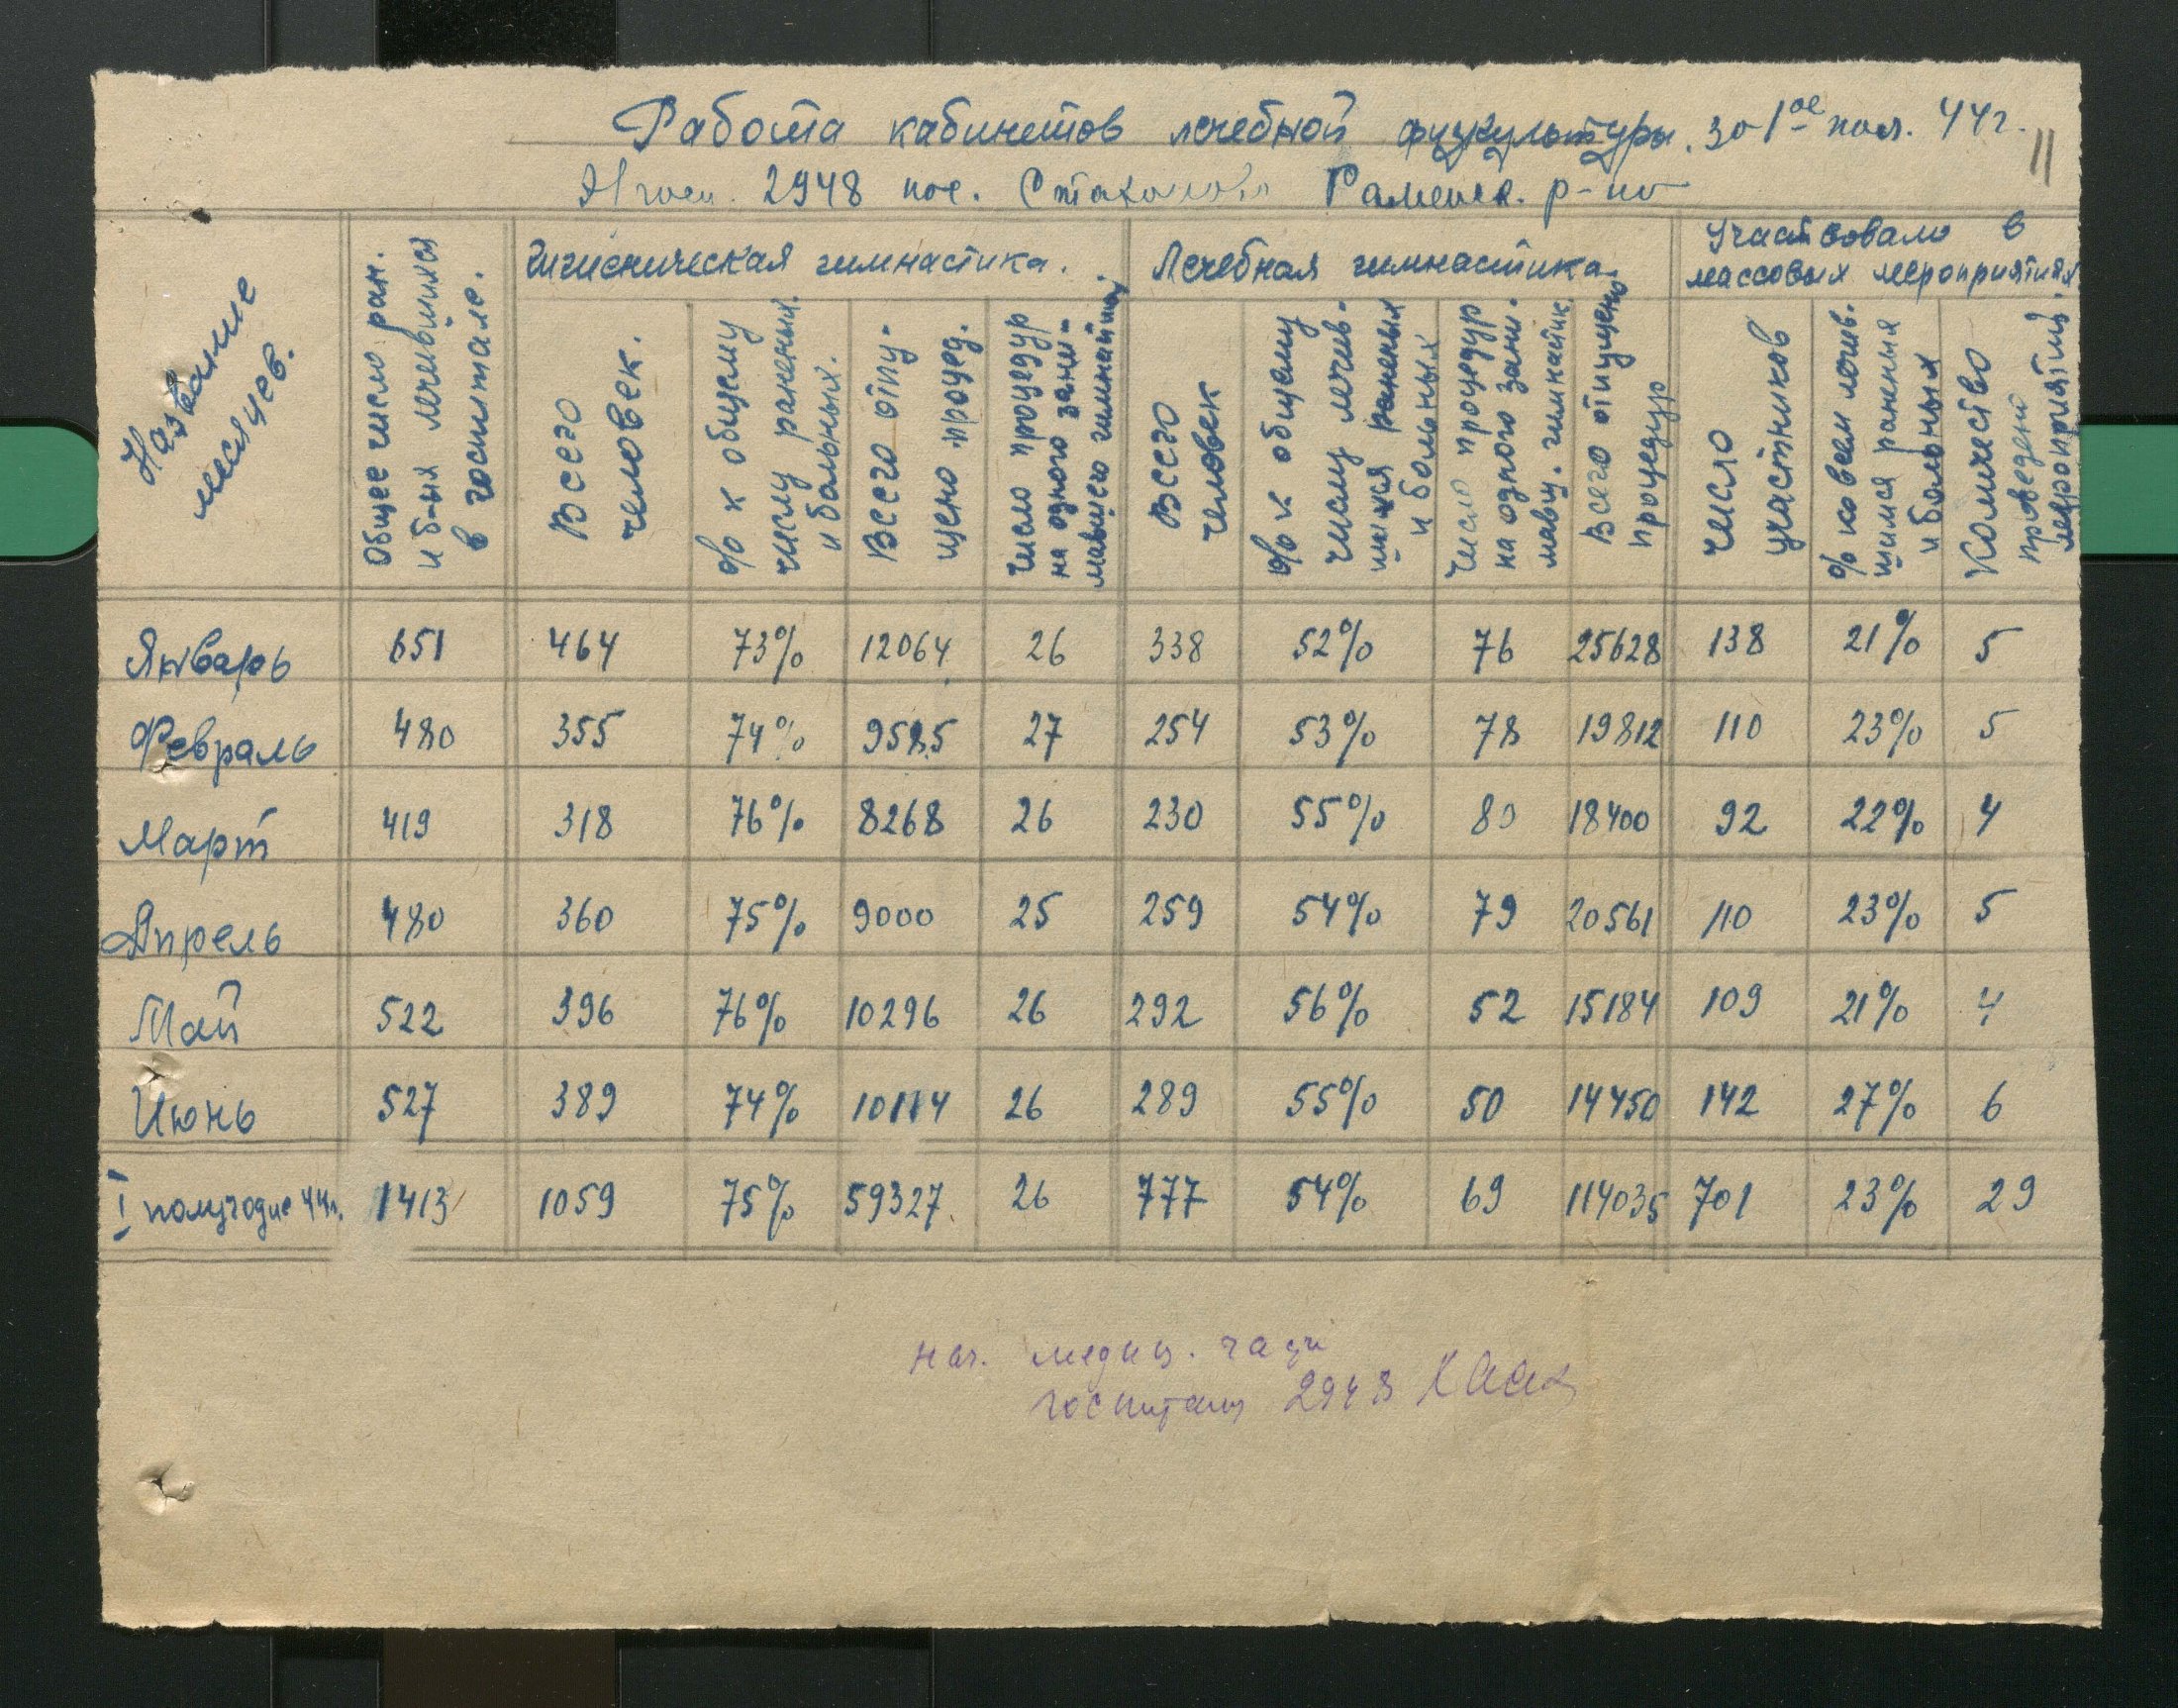 Работа кабинетов лечебной физкультуры. за 1ое пол. 44г.
11
госп. 2948 пос. Раменск. р-на
Название месяцев.
Общее число ран. и б-ых лечившихся в госпитале.
Гигиеническая гимнастика.
Лечебная гимнастика.
Участвовало в массовых мероприятиях
Всего человек.
% к общему числу раненых и больных.
Всего отпущено процед.
Число процедур на одного занимавшегося гимнастикой
Всего человек
% к общему числу лечившихся раненых и больных
Число процедур на одного занимавш. гимнастик.
Всего отпущено процедур
Число участников
% ко всем лечившимся раненым и больным
Количество проведен. мероприятий.
Январь 651 464 73% 12064 26 338 52% 76 25628 138 21% 5
Февраль 480 355 74% 9585 27 254 53% 78 19812 110 23% 5
Март 419 318 76% 8268 26 230 55% 80 18400 92 22% 4
Апрель 480 360 75% 9000 25 259 54% 79 20561 110 23% 5
Май 522 396 76% 10296 26 292 56% 52 15184 109 21% 4
Июнь 527 389 74% 10114 26 289 55% 50 14450 142 27% 6
I полугодие 44г. 1413 1059 75% 59327 26 777 54% 69 114035 701 23% 29
нач. медиц. части
госпиталя 2948